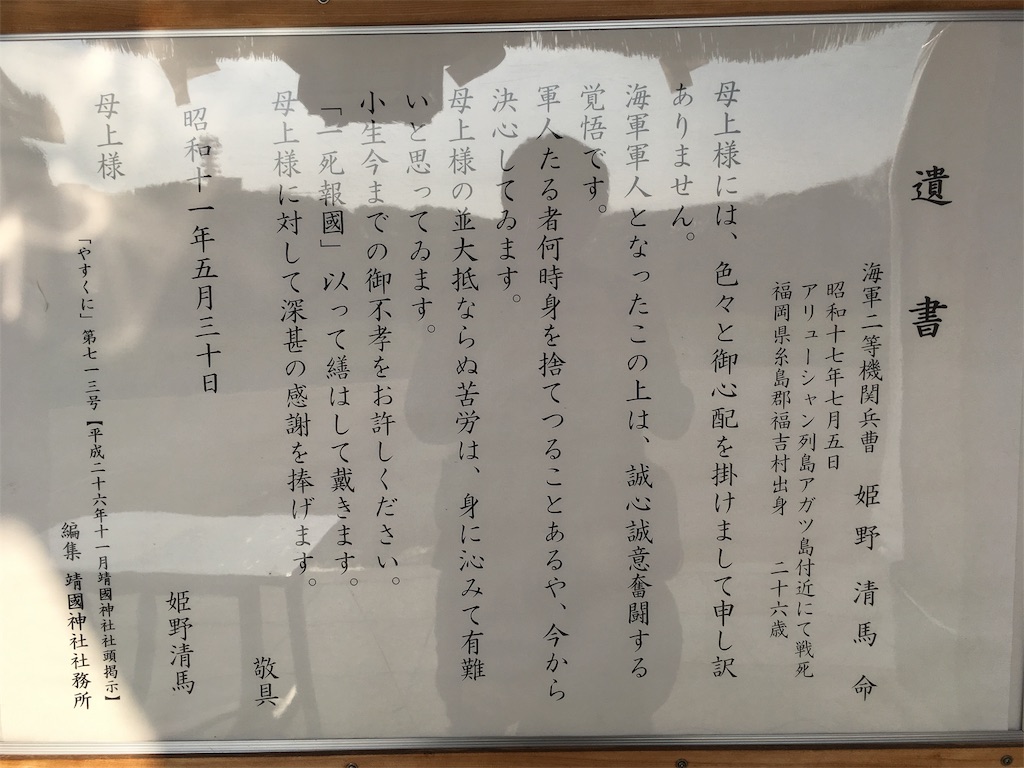 遺書
海軍二等機関兵曹 姫野清馬命
昭和十七年七月五日
アリューシャン列島アガツ島付近にて戦死
福岡県糸島郡福吉村出身 二十六歳
母上様には、色々と御心配を掛けまして申し訳
ありません。
海軍軍人となったこの上は、誠心誠意奮闘する
覚悟です。
軍人たる者何時身を捨てつることあるや、今から
決心してゐます。
母上様の並大抵ならぬ苦労は、身に沁みて有難
いと思ってゐます。
小生今までの御不孝をお許しください。
「一死報國」以って繕はして戴きます。
母上様に対して深甚の感謝を捧げます。
敬具
昭和十一年五月三十日
姫野清馬
母上様
「やすくに」第七一三号【平成二十六年十一月靖國神社社頭掲示】
編集 靖國神社社務所